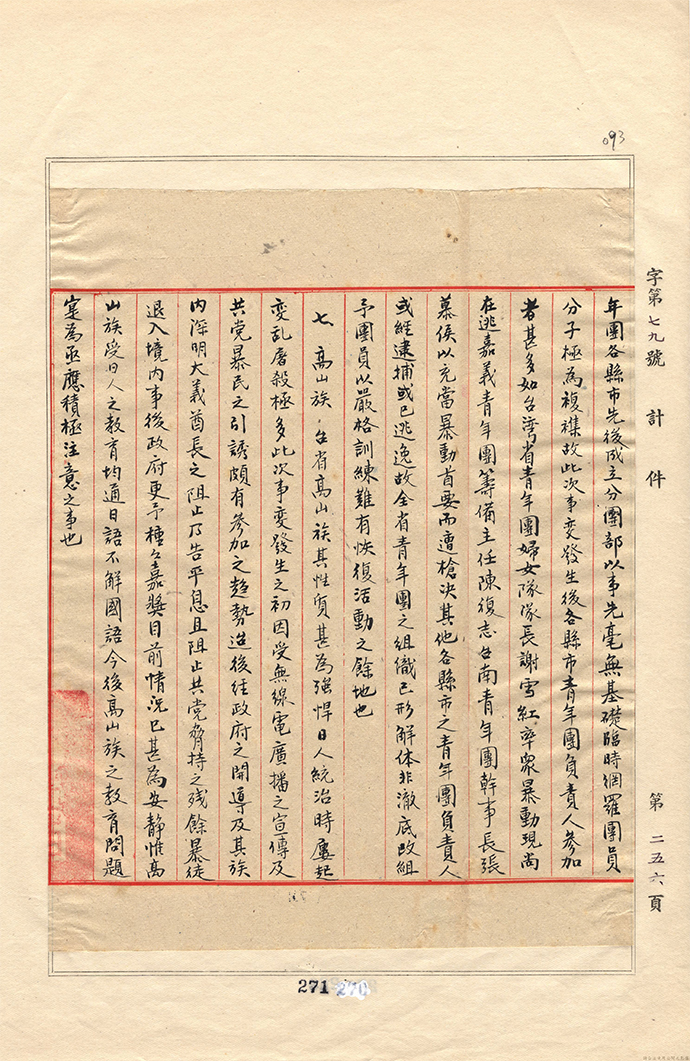 093
字第七九號 計 件 第二五六頁
年團各縣市先後成立分團部以事先毫無基礎臨時網羅團員
分子極為複襍故此次事変發生後各縣市青年團負責人參加
者甚多如台湾省青年團婦女隊隊長謝雪紅率衆暴動現尚
在逃嘉義青年團籌備主任陳復志台南青年團幹事長張
慕侯以充當暴動首要而遭槍決其他各縣市之青年團負責人
或經逮捕或已逃逸故全省青年團之組織已形解体非澈底改組
予團員以嚴格訓練難有恢復活動之餘地也
七、高山族，台省高山族其性質甚為強悍日人統治時屢起
变乱屠殺極多此次事变發生之初因受無線電廣播之宣傳及
共党暴民之引誘頗有參加之趨勢迨後经政府之開導及其族
内深明大義酋長之阻止乃告平息且阻止共党脅持之残餘暴徒
退入境内事後政府更予種々嘉奬目前情況已甚為安靜惟高
山族受日人之教育均通日語不解國語今後高山族之教育問題
寔為亟應積極注意之事也
271 270